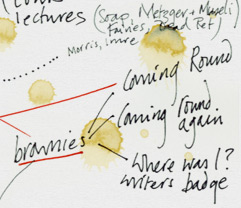 lectures
(Soap, Metzger + Muesli)
Fairies, Dead Pet)
Morris, Imre
Coming Round
Coming round
again
brownies
Where was I?
writers badge